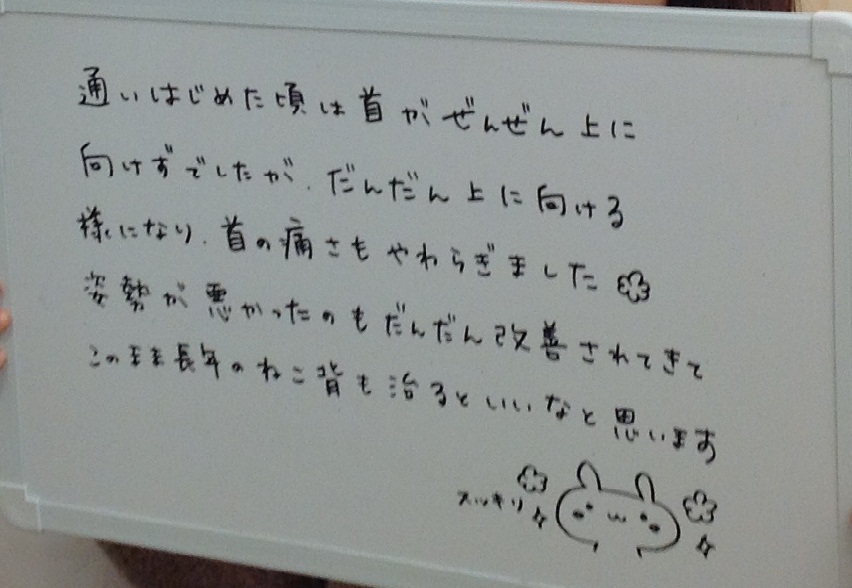 通いはじめた頃は首がぜんぜん上に
向けずでしたが、だんだん上に向ける
様になり、首の痛さもやわらぎました
姿勢が悪かったのもだんだん改善されてきて
このまま長年のねこ背も治るといいなと思います
スッキリ